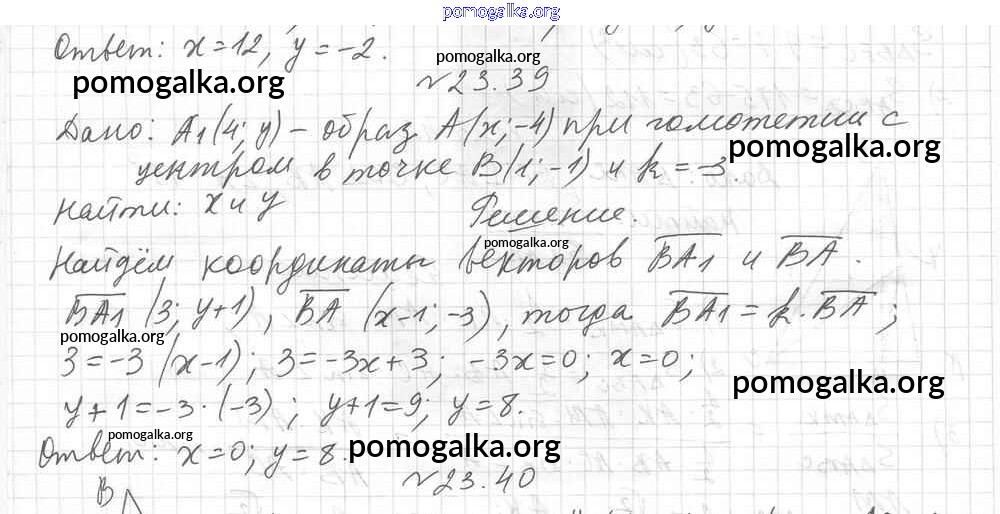 pomogalka.org
Ответ: x=12, y=-2.
pomogalka.org
pomogalka.org
№23.39
Дано: A₁(4; y) – образ A(x; -4) при гомотетии с
pomogalka.org
центром в точке B(1; -1) и k = -3.
Найти: x и y
Решение.
pomogalka.org
Найдём координаты векторов BA₁ и BA.
BA₁ (3; y+1), BA (x-1; -3), тогда BA₁ = k·BA;
pomogalka.org
3=-3(x-1); 3=-3x+3; -3x=0; x=0;
pomogalka.org
y+1=-3·(-3); y+1=9; y=8.
pomogalka.org
Ответ: x=0; y=8.
pomogalka.org
№23.40
B